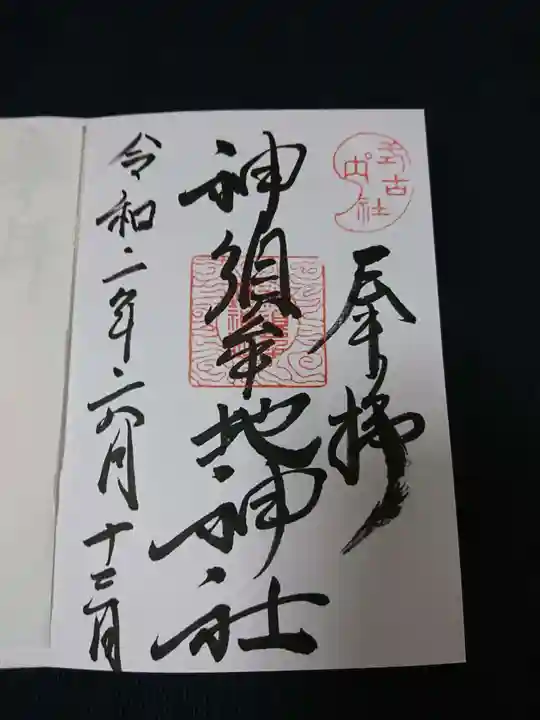 奉拝
神須牟地神社
令和二年六月十二日
式内古社